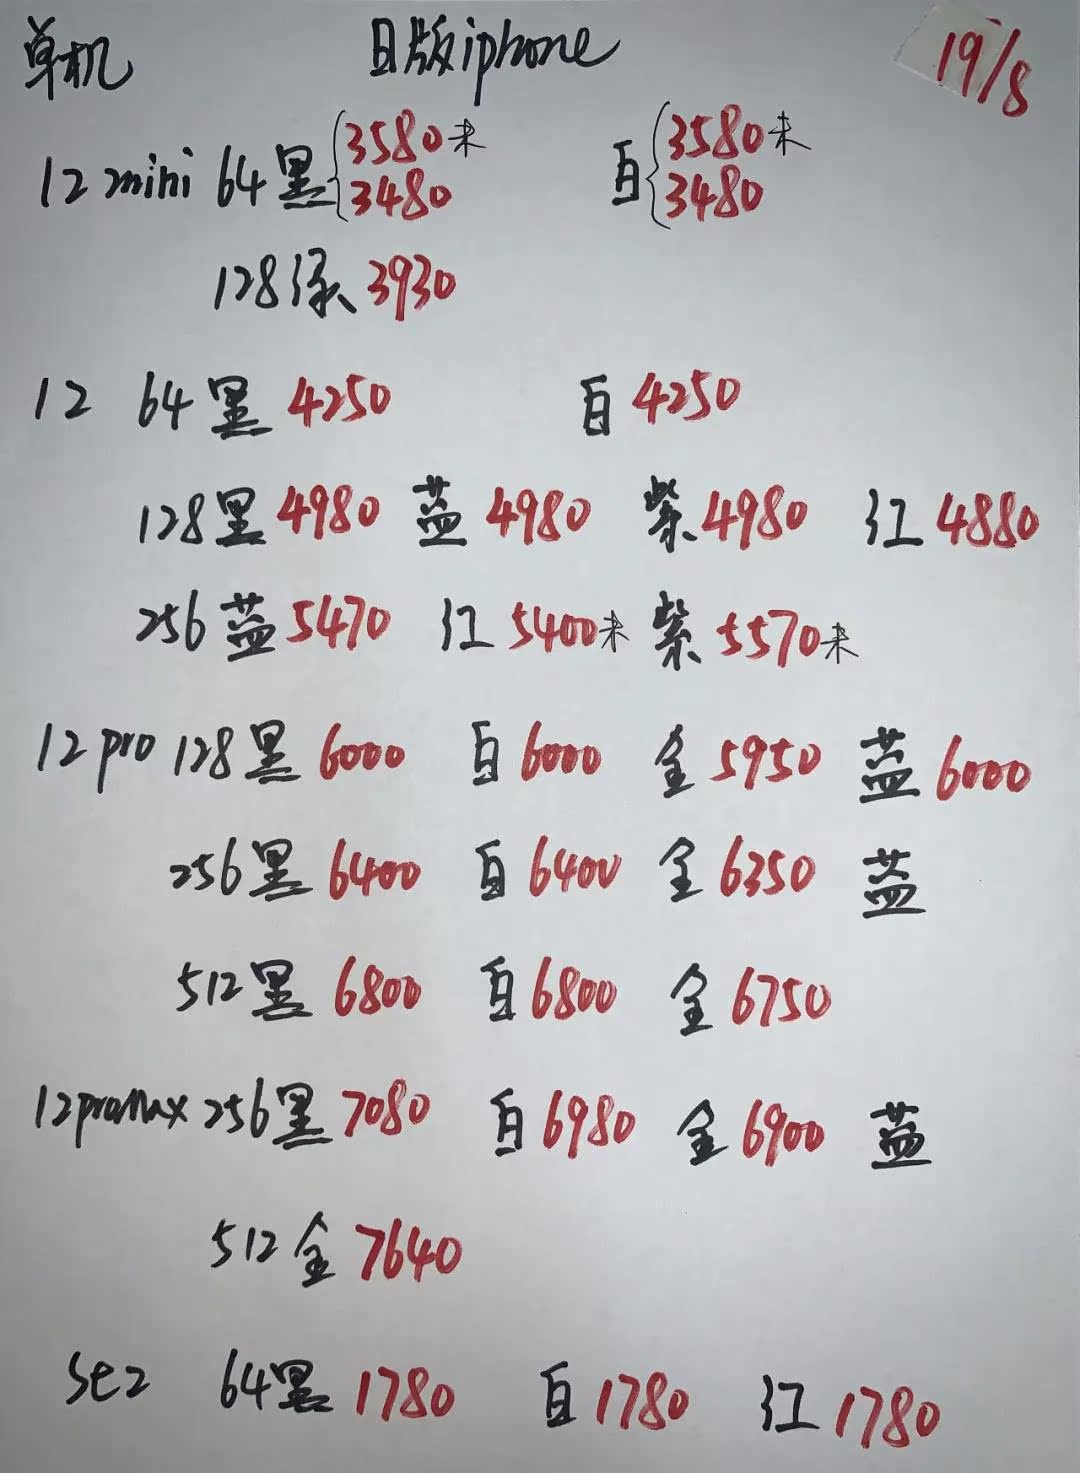 单机 日版iphone 19/8
12mini 64黑{3580未 白{3580未
3480 3480
128绿 3930
12 64黑 4250 白 4250
128黑 4980 蓝 4980 紫 4980 红 4880
256蓝 5470 红 5400未 紫 5570未
12pro 128黑 6000 白 6000 金 5950 蓝 6000
256黑 6400 白 6400 金 6350 蓝
512黑 6800 白 6800 金 6750
12proMax 256黑 7080 白 6980 金 6900 蓝
512金 7640
SE2 64黑 1780 白 1780 红 1780